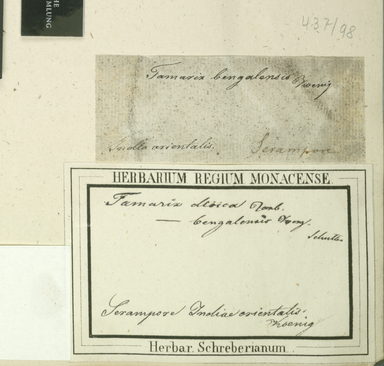 MLUNG
437/98
Tamarix bengalensis Koenig
India orientalis. Serampore
HERBARIUM REGIUM MONACENSE.
Tamarix dioica Roxb.
— bengalensis Koenig
Serampore Indiae orientalis.
Koenig
Herbar. Schreberianum.